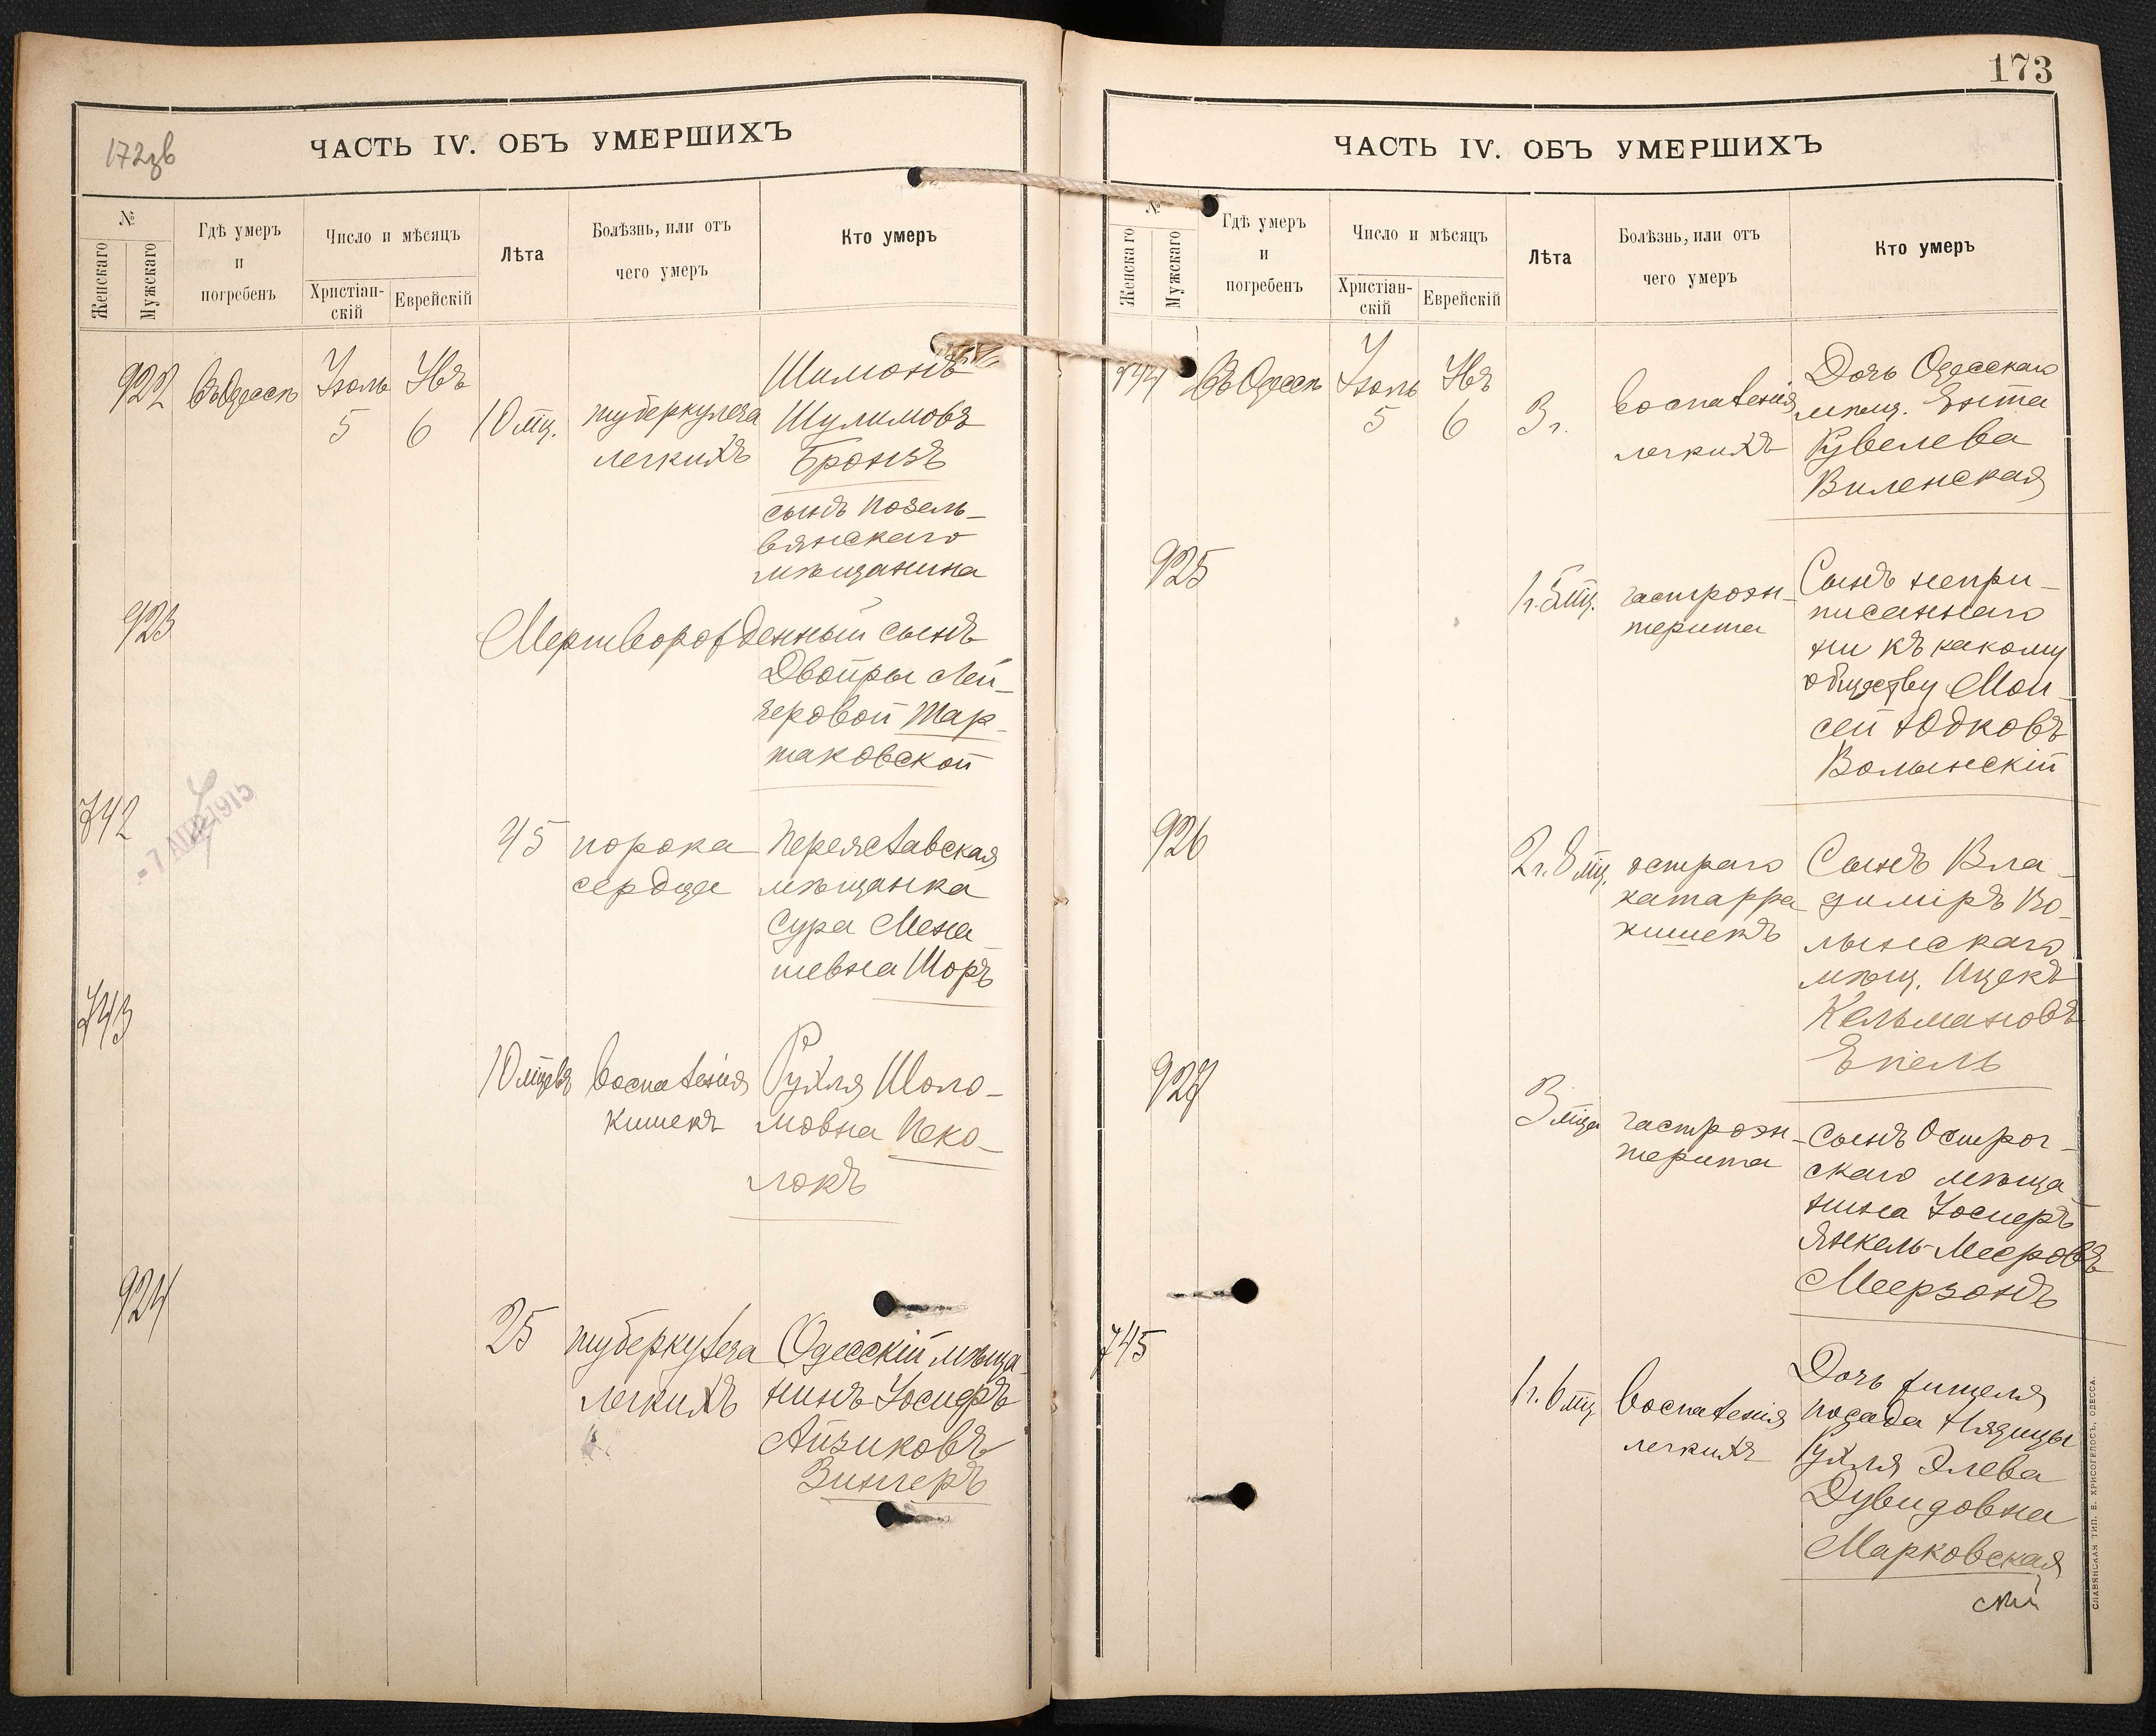 172 зв
ЧАСТЬ IV. ОБЪ УМЕРШИХЪ
№
Женскаго
Мужскаго
Гдѣ умеръ
и
погребенъ
Число и мѣсяцъ
Христіан-
скій
Еврейскій
Лѣта
Болѣзнь, или отъ
чего умеръ
Кто умеръ
922 Въ Одессѣ Іюль 5 Авъ 6 10 мц. туберкулеза
легкихъ
Шимонъ
Шулимовъ
Бронзъ
сынъ позель-
вянскаго
мѣщанина
923 Мертворожденный сынъ
Двойры Лей-
зеровой Тар-
таковской
742 45 порока
сердца
Переяславская
мѣщанка
Сура Мена
шевна Шоръ
-7 АПР 1915
743 10 мцевъ воспаленія
кишекъ
Рухля Шоло-
мовна Пеко-
локъ
924 25 туберкулеза
легкихъ
Одесскій мѣща-
нинъ Іосифъ
Айзиковъ
Зингеръ
173
ЧАСТЬ IV. ОБЪ УМЕРШИХЪ
№
Женскаго
Мужскаго
Гдѣ умеръ
и
погребенъ
Число и мѣсяцъ
Христіан-
скій
Еврейскій
Лѣта
Болѣзнь, или отъ
чего умеръ
Кто умеръ
744 Въ Одессѣ Іюль 5 Авъ 6 3 г. воспаленія
легкихъ
Дочь Одесскаго
мѣщ. Ента
Кувелева
Виленская
925 1 г. 5 мц. гастроэн-
терита
Сынъ непри-
писаннаго
ни къ какому
обществу Мои-
сей Юдковъ
Волынскій
926 2 г. 8 мц. остраго
катарра
кишекъ
Сынъ Вла-
димiръ Во-
лынскаго
мѣщ. Ицекъ
Кельмановъ
Епель
927 3 мца гастроэн-
терита
Сынъ Острог-
скаго мѣща-
нина Іосифъ
Янкель-Мееровъ
Меерзонъ
745 1 г. 6 мц. воспаленія
легкихъ
Дочь жителя
посада
Рухля Элева
Дувидовна
Марковская
СЛАВЯНСКАЯ ТИП. Е. ХРИСОГЕЛОСЪ, ОДЕССА.